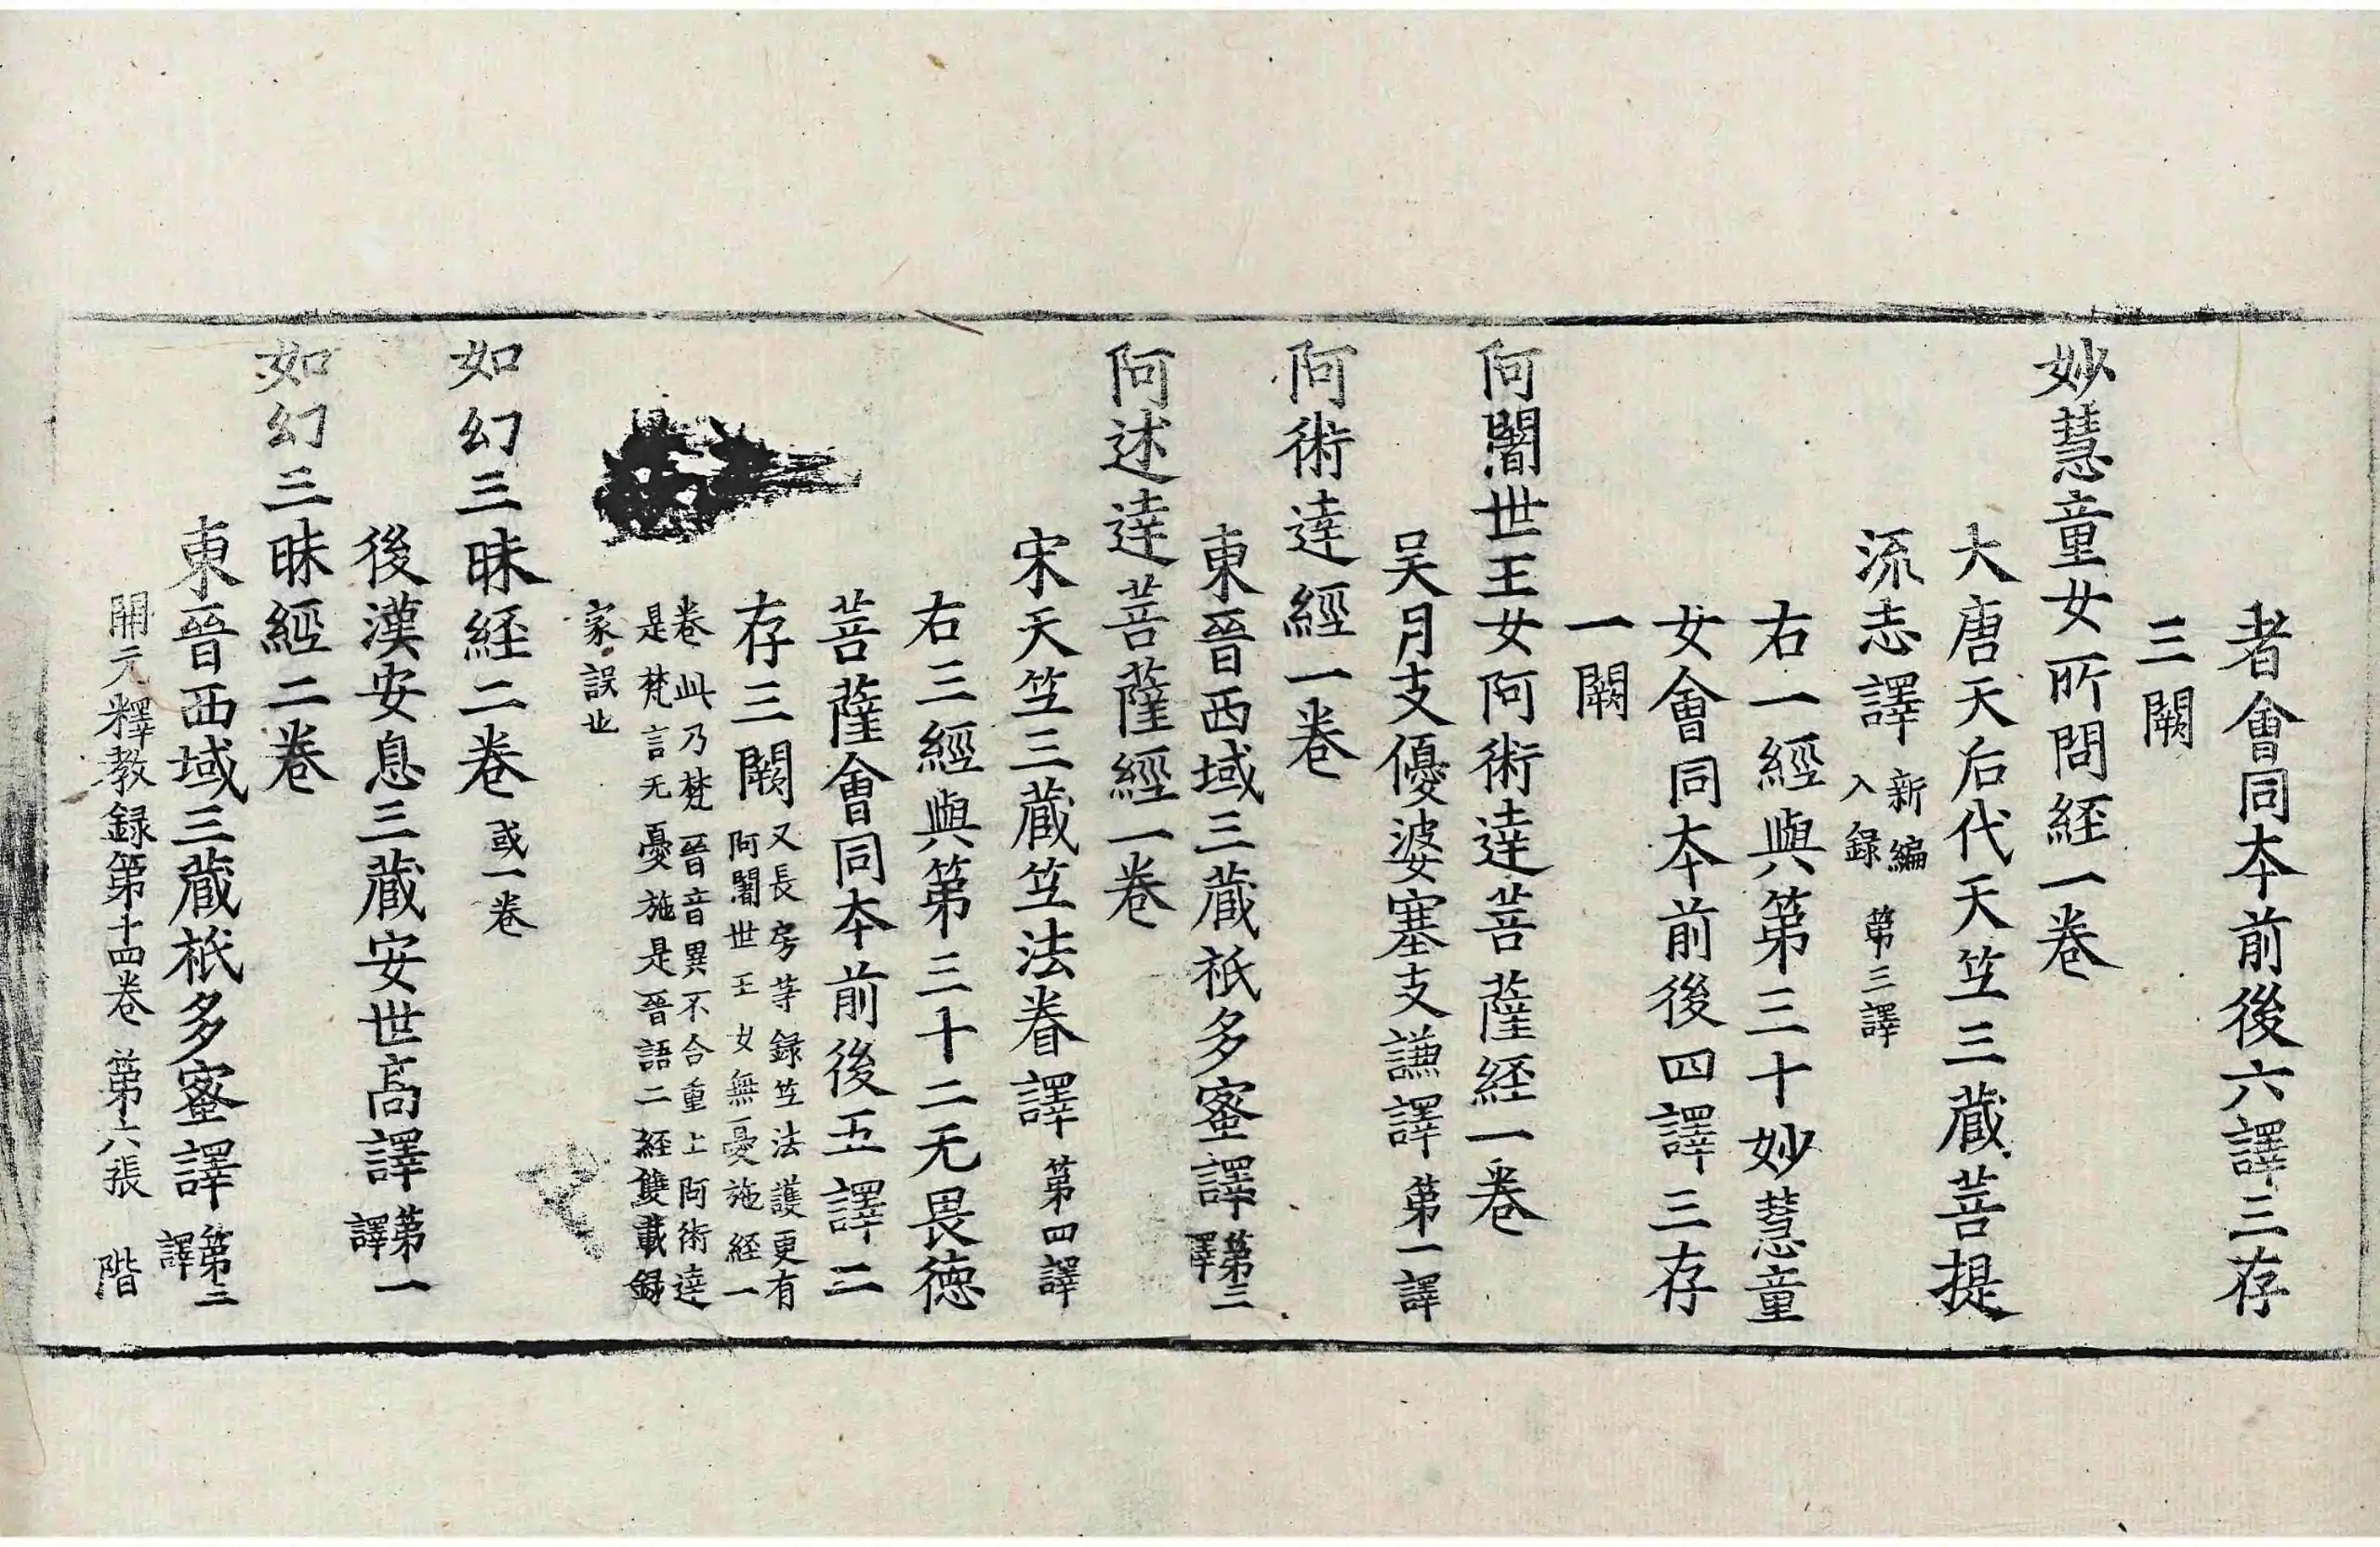 者會同本前後六譯三存
三闕
妙慧童女所問経一卷
大唐天后代天竺三藏菩提
流志譯 新編入録 第三譯
右一經與第三十妙慧童
女會同本前後四譯三存
一闕
阿闍世王女阿術達菩薩経一卷
吴月支優婆塞支謙譯 第一譯
阿術達經一卷
東晉西域三藏祇多蜜譯 第三譯
阿述達菩薩經一卷
宋天竺三藏竺法眷譯 第四譯
右三經與第三十二无畏德
菩薩會同本前後五譯二
存三闕 又長房等録竺法護更有
阿闍世王女無憂施経一
卷此乃梵晉音異不合重上阿術達
是梵言无憂施是晉語二経雙載録
家誤也
如幻三昧経二卷 或一卷
後漢安息三藏安世高譯 第一譯
如幻三昧經二卷
東晉西域三藏祇多蜜譯 第三譯
開元釋教録第十四卷 第六張 階